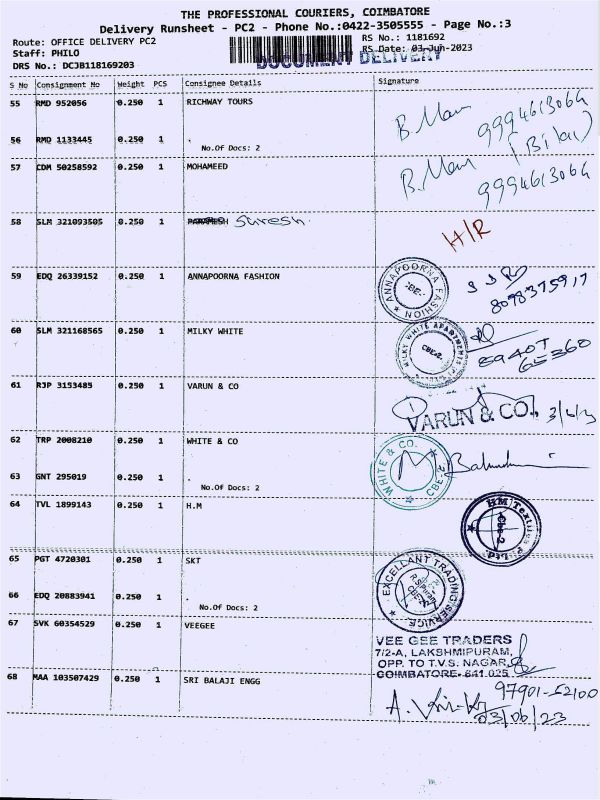 THE PROFESSIONAL COURIERS, COIMBATORE
Delivery Runsheet - PC2 - Phone No.:0422-3505555 - Page No.:3
Route: OFFICE DELIVERY PC2 RS No.: 1181692
Staff: PHILO RS Date: 03-Jun-2023
DRS No.: DCJB118169203 DOCUMENT DELIVERY
S No Consignment No Weight PCS Consignee Details Signature
55 RMD 952056 0.250 1 RICHWAY TOURS
B. Man 9994613064
(Bilal)
56 RMD 1133445 0.250 1 .
No.Of Docs: 2
57 CDM 50258592 0.250 1 MOHAMEED
B. Man 9994613064
58 SLM 321093505 0.250 1 PARAMESH Suresh.
H/R
59 EDQ 26339152 0.250 1 ANNAPOORNA FASHION
ANNAPOORNA FASHION
-CBE-
8098375917
60 SLM 321168565 0.250 1 MILKY WHITE
MILKY WHITE APARTMENTS
CBE-2.
89407
65360
61 RJP 3153485 0.250 1 VARUN & CO
VARUN & CO.,
62 TRP 2008210 0.250 1 WHITE & CO
WHITE & CO.
CBE-2
63 GNT 295019 0.250 1 .
No.Of Docs: 2
64 TVL 1899143 0.250 1 H.M
HM Textiles P Ltd.
Cbe-2
65 PGT 4720301 0.250 1 SKT
EXCELLANT TRADING SERVICE
R.S.Puram
CBE-2
66 EDQ 20883941 0.250 1 .
No.Of Docs: 2
67 SVK 60354529 0.250 1 VEEGEE
VEE GEE TRADERS
7/2-A, LAKSHMIPURAM,
OPP. TO T.V.S. NAGAR,
COIMBATORE- 641 025
68 MAA 103507429 0.250 1 SRI BALAJI ENGG
97901-52100
03/06/23